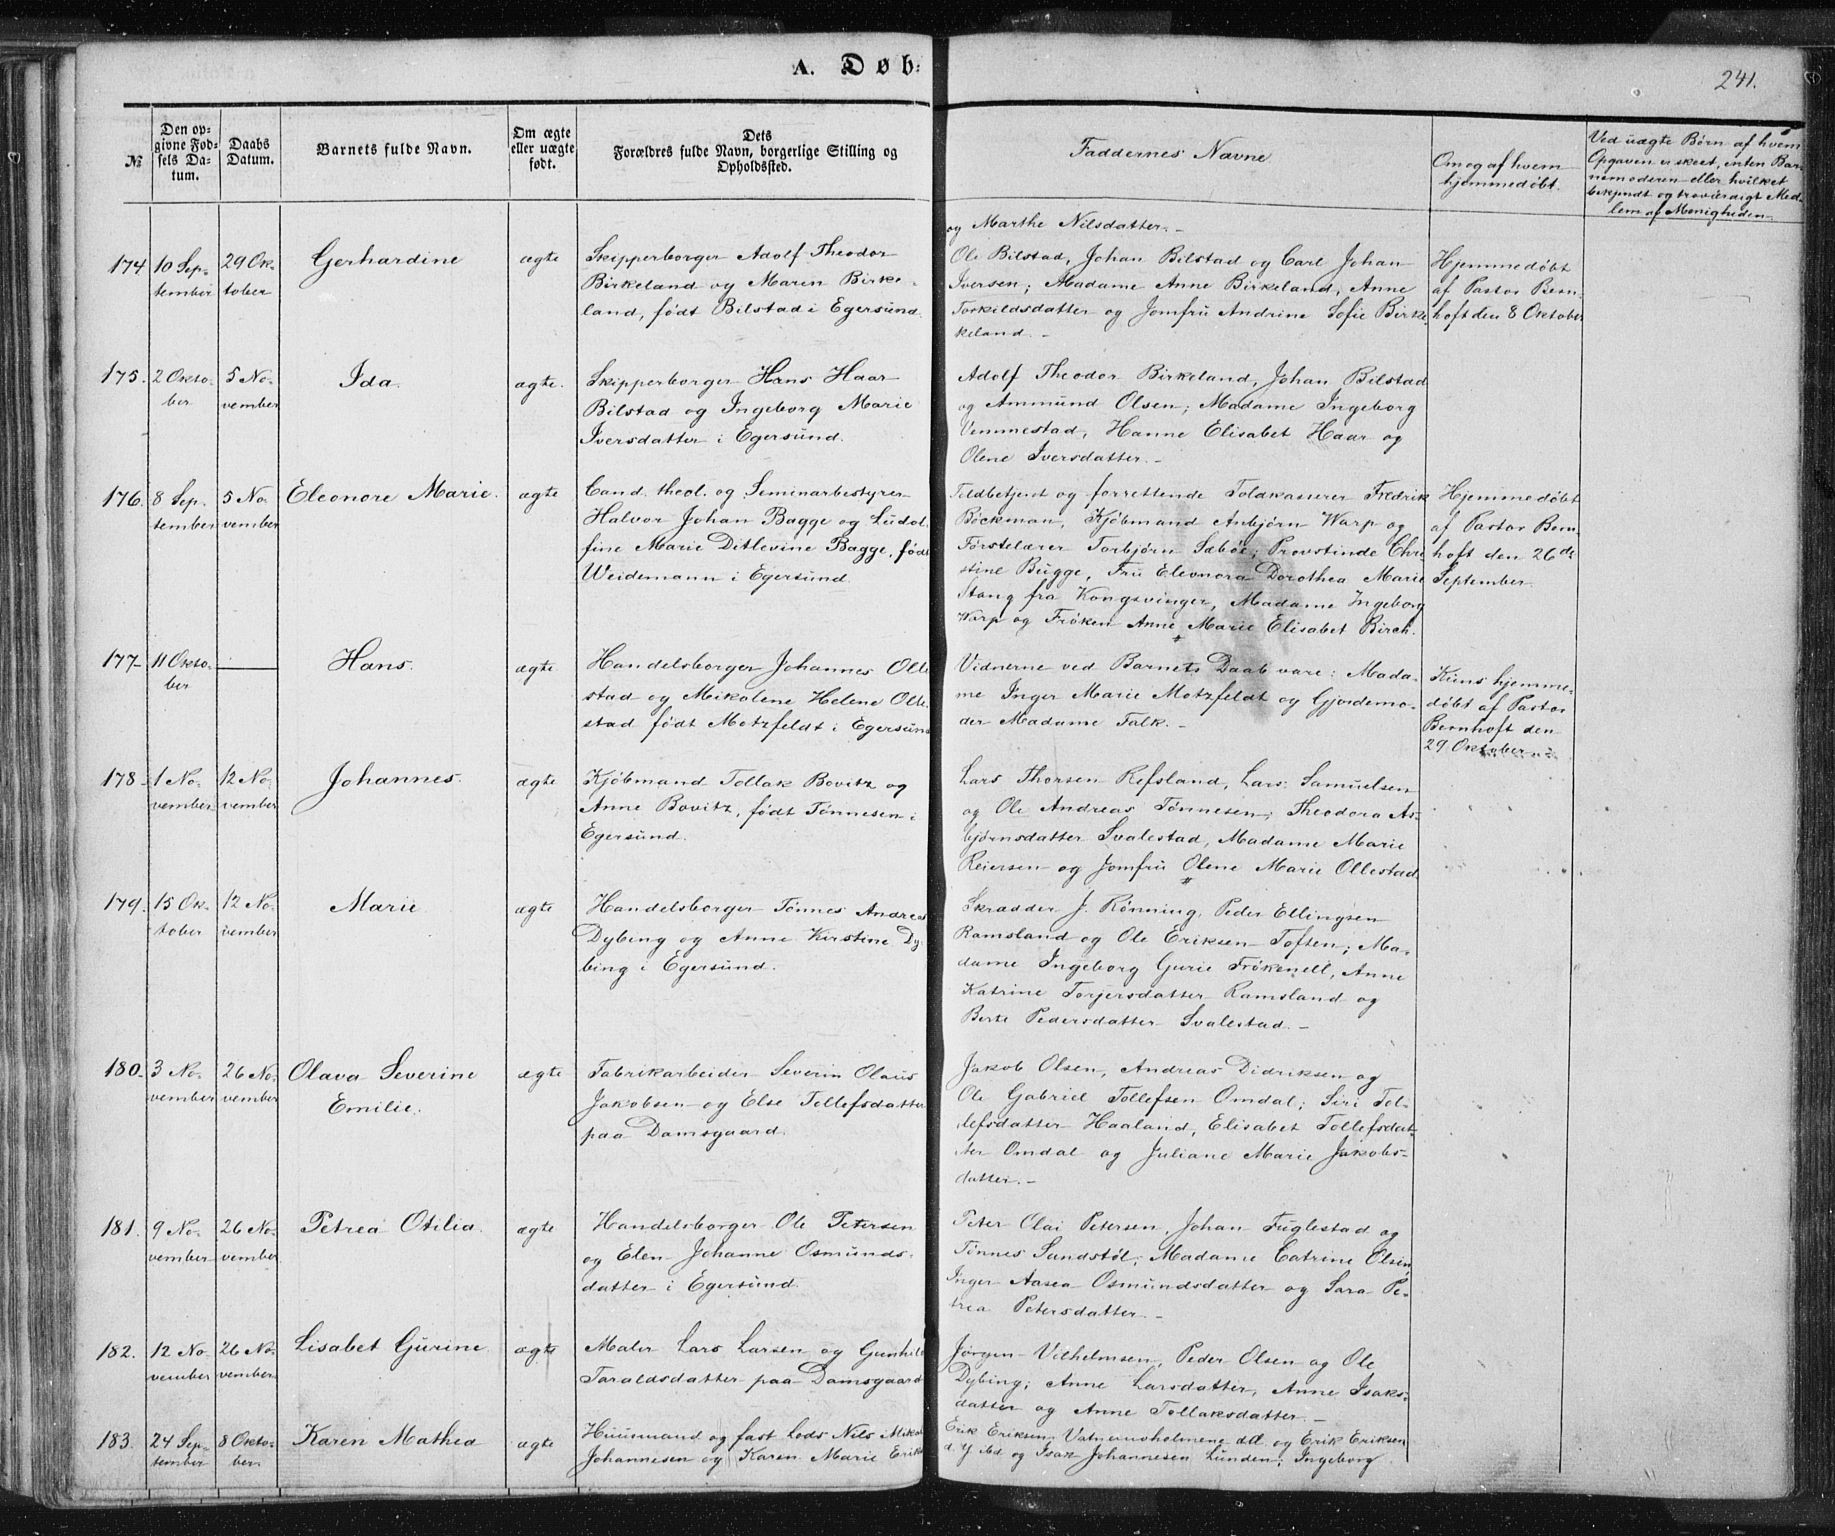 A. Døb:
241.
№
Den op-
givne Fød-
sels Da-
tum.
Daabs
Datum.
Barnets fulde Navn.
Om ægte
eller uægte
født.
Dets
Forældres fulde Navn, borgerlige Stilling og
Opholdssted.
Faddernes Navne
Om og af hvem
hjemmedøbt.
Ved uægte Børn af hvem
Opgaven er skeet, enten Bar-
nemoderen eller hvilket
bekjendt og troværdigt Med-
lem af Menigheden.
og Marthe Nilsdatter. -
174
10 Sep-
tember
29 Ok-
tober
Gerhardine
ægte
Skipperborger Adolf Theodor
Birkeland og Maren Birke-
land, født Bilstad i Egersund.
Ole Bilstad, Johan Bilstad og Carl Johan
Iversen; Madame Anne Birkeland, Anne
Torkildsdatter og Jomfru Andrine Sofie Birke-
keland. -
Hjemmedøbt
af Pastor Bern-
hoft den 8 Oktober
175.
2 Okto-
ber
5 No-
vember
Ida.
ægte.
Skipperborger Hans Haar
Bilstad og Ingeborg Marie
Iversdatter i Egersund.
Adolf Theodor Birkeland, Johan Bilstad
og Ammund Olsen; Madame Ingeborg
Vemmestad, Hanne Elisabet Haar og
Olene Iversdatter. -
176.
8 Sep-
tember
5 No-
vember
Eleonore Marie.
ægte
Cand. theol. og Seminarbestyrer
Halvor Johan Bagge og Ludol-
fine Marie Ditlevine Bagge, født
Weidemann i Egersund.
Toldbetjent og forrettende Toldkasserer Fredrik
Böckman, Kjöbmand Anbjörn Warp og
Förstelærer Torbjörn Sæböe; Provstinde Chri
stine Bugge, Fru Eleonora Dorothea Marie
Stang fra Kongsvinger, Madame Ingeborg
Warp og Fröken Anne Marie Elisabet Birch.
Hjemmedöbt
af Pastor Bern-
hoft den 26de
September
177-
11 Okto-
ber
Hans.
ægte
Handelsborger Johannes Olle
stad og Mikolene Helene Olle-
stad født Motzfeldt i Egersund
Vidnerne ved Barnets Daab vare: Mada-
me Inger Marie Motzfeldt og Gjordemo-
der Madame Falk. -
Kuns hjemme-
døbt af Pastor
Bernhoft den
29 Oktober
178-
1 No-
vember
12 No-
vember
Johannes.
ægte
Kjöbmand Tollak Bowitz og
Anne Bowitz, født Tønnesen i
Egersund.
Lars Thorsen Refsland, Lars Samuelsen
og Ole Andreas Tönnesen; Theodora As-
bjørnsdatter Svalestad, Madame Marie
Reiersen og Jomfru Olene Marie Ollestad
179.
15 Ok-
tober
12 No-
vember
Marie
ægte
Handelsborger Tönnes Andreas
Dybing og Anne Kirstine Dy-
bing i Egersund.
Skrædder J. Rönning, Peder Ellingsen
Ramsland og Ole Eriksen Toften; Ma-
dame Ingeborg Gurie Frökenell, Anne
Katrine Torjersdatter Ramsland og
Berte Pedersdatter Svalestad. -
180-
3 No-
vember
26 No-
vember
Olava Severine
Emilie.
ægte
Fabrikarbeider Severin Olaus
Jakobsen og Else Tollefsdatter
paa Damsgaard.
Jakob Olsen, Andreas Didriksen og
Ole Gabriel Tollefsen Omdal; Siri Tol-
lefsdatter Haaland, Elisabet Tollefsdat-
ter Omdal og Juliane Marie Jakobs-
datter. -
181.
9 No-
vember
26 No-
vember
Petrea Otilia.
ægte
Handelsborger Ole Petersen
og Elen Johanne Osmunds-
datter i Egersund.
Peter Olai Petersen, Johan Fuglestad og
Tönnes Sandstöl; Madame Catrine Olsen,
Inger Aasea Osmundsdatter og Sara Pe-
trea Petersdatter. -
182.
12 No-
vember
26 No-
vember
Lisabet Gurine.
ægte
Maler Lars Larsen og Gunhild
Taraldsdatter paa Damsgaard
Jørgen Vilhelmsen, Peder Olsen og Ole
Dybing; Anne Larsdatter, Anne Isaks-
datter og Anne Tollaksdatter. -
183.
24 Sep-
tember
8 Okto-
ber
Karen Mathea
ægte
Huusmand og fast Lods Nils Mikal
Johannesen og Karen Marie Eriks
Erik Eriksen og Erik Eriksen
og Isak Johannesen Lunden; Ingeborg